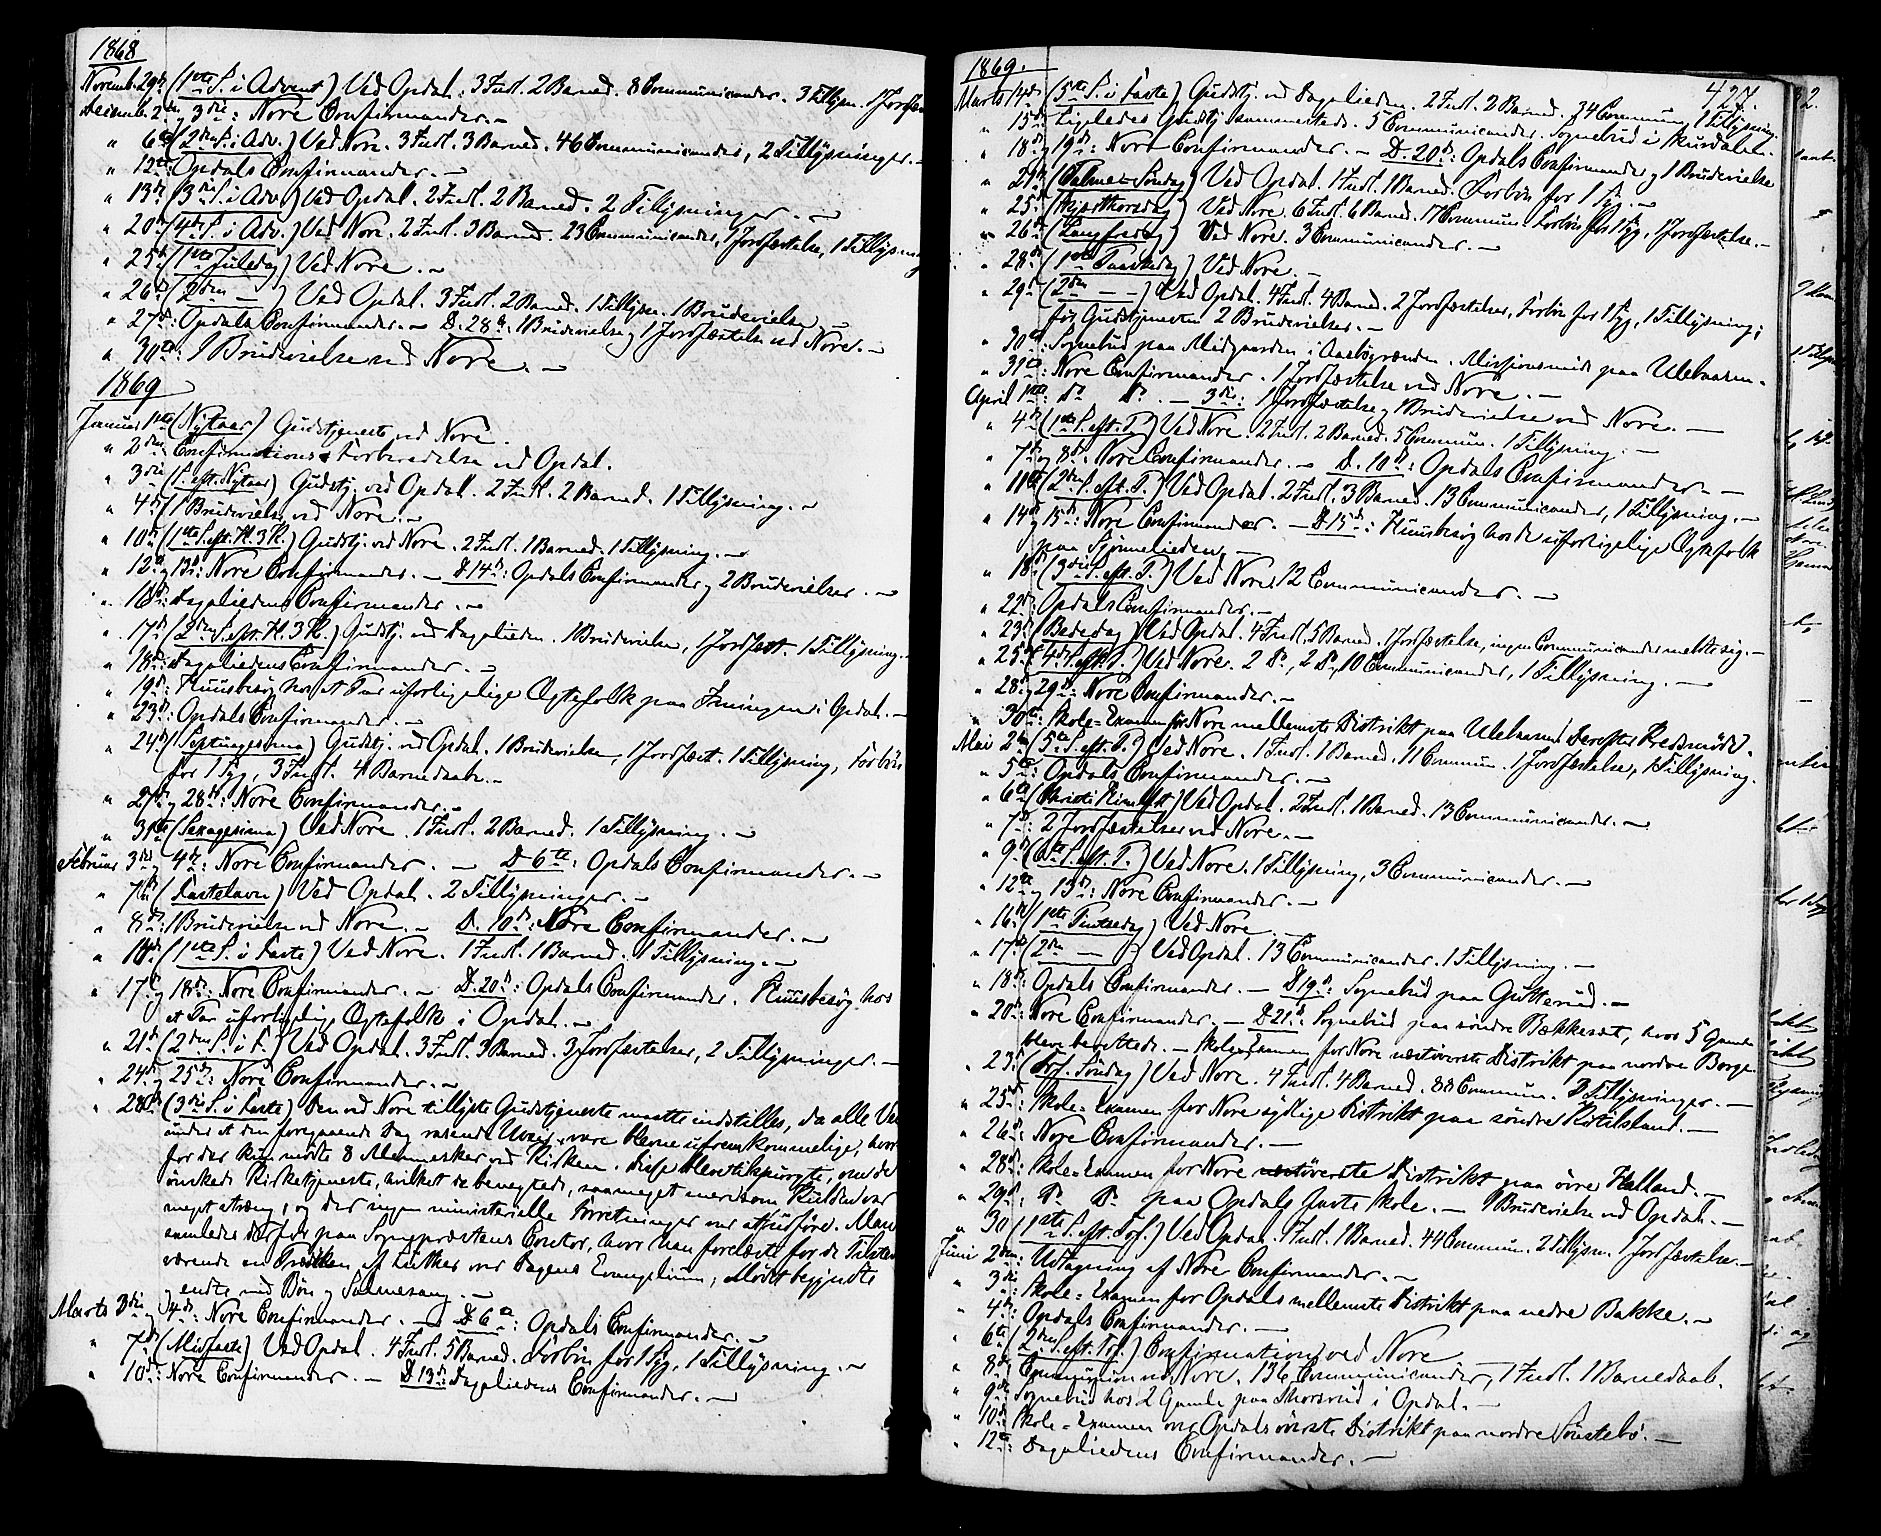 1868
Novemb. 29de (1ste S. i Advent) Ved Opdal. 3 Indl. 2 Barned. 8 Communicander. 3 Tillysn. 1 Jordfæst
Decemb. 2den og 3die: Nore Confirmander. –
" 6te (2den S. i Adv.) Ved Nore. 3 Indl. 3 Barned. 46 Communicander, 2 Tillysninger. –
" 12te: Opdals Confirmander. –
" 13de (3die S. i Adv.) Ved Opdal. 2 Indl. 2 Barned. 2 Tillysninger. –
" 20de (4de S. i Adv.) Ved Nore. 2 Indl. 3 Barned. 23 Communicander, 1 Jordfæstelse, 1 Tillysning
" 25de (1ste Juledag) Ved Nore. –
" 26de (2den – ) Ved Opdal. 3 Indl. 2 Barned. 1 Tillysn. 1 Brudevielse –
" 27de: Opdals Confirmander. – D. 28de: 1 Brudevielse og 1 Jordfæstelse ved Nore. –
" 30te: 1 Brudevielse ved Nore. –
1869
Januar 1ste (Nytaar) Gudstjeneste ved Nore.
" 2den Confirmations Forberedelse ved Opdal.
" 3die (S. eft. Nytaar) Gudstj. ved Opdal. 2 Indl. 2 Barned. 1 Tillysning. –
" 4de: 1 Brudevielse ved Nore. –
" 10de (1ste S. eft. H. 3 K.) Gudstj. ved Nore. 2 Indl. 1 Barned. 1 Tillysning. –
" 12te og 13de: Nore Confirmander. – D. 14de: Opdals Confirmander og 2 Brudevielser. –
" 16de: Dagaliedens Confirmander. –
" 17de (2den S. eft. H. 3 K.) Gudstj. ved Dagalieden. 1 Brudevielse, 1 Jordfæst. 1 Tillysning. –
" 18de: Dagaliedens Confirmander. –
" 19de: Huusbesøg hos et Par uforligelige Ægtefolk paa i Opdal. –
" 23de: Opdals Confirmander. –
" 24de (Septuagesima) Gudstj. ved Opdal. 1 Brudevielse, 1 Jordfæst. 1 Tillysning, Forbön
for 1 Syg, 3 Indl. 4 Barnedaab. –
" 27de og 28de: Nore Confirmander. –
" 31te (Sexagesima) Ved Nore. 1 Indl. 2 Barned. 1 Tillysning. –
Februar 3die og 4de: Nore Confirmander. – D. 6te: Opdals Confirmander. –
" 7de (Fastelavn) Ved Opdal. 2 Tillysninger. –
" 8de: 1 Brudevielse ved Nore. – D. 10de: Nore Confirmander. –
" 14de (1ste S. i Faste) Ved Nore. 1 Indl. 1 Barned. 1 Tillysning. –
" 17de og 18de: Nore Confirmander. – D. 20de: Opdals Confirmander. Huusbesøg hos
et Par uforligelige Ægtefolk i Opdal. –
" 21de (2den S. i F.) Ved Opdal. 3 Indl. 3 Barned. 3 Jordfæstelser, 2 Tillysninger. –
" 24de og 25de: Nore Confirmander. –
" 28de (3die S. i Faste) Den ved Nore tillyste Gudstjeneste maatte indstilles, da alle Veie
under et den foregaaende Dag rasende Uveir vare blevne ufremkommelige, hvor
for der kun mödte 8 Mennesker ved Kirken. Disse om de
önskede Kirketjeneste, hvilket de benegtede, saameget meer som Kulden var
meget streng, og der ingen ministerielle Forretninger var at udföre. Man
samledes derfor paa Sognepræstens Contor, hvor han forelæste for de Tilstede-
værende en Prædiken af Luther over Dagens Evangelium; Mödet begyndte
og endte med Bön og Salmesang. –
Marts 3die og 4de: Nore Confirmander. – D. 6te: Opdals Confirmander. –
" 7de (Midfaste) Ved Opdal. 4 Indl. 5 Barned. Forbön for 1 Syg, 1 Tillysning. –
" 10de: Nore Confirmander. – D. 13de: Dagaliedens Confirmander. –
1869.
427.
Marts 14de (5te S. i Faste) Gudstj. ved Dagalieden. 2 Indl. 2 Barned. 34 Commun. 1 Tillysning.
" 15de Ligeledes Gudstj. sammesteds. 5 Communicander. Sognebud i Skurdalen. –
" 18de og 19de: Nore Confirmander. – D. 20de: Opdals Confirmander og 1 Brudevielse
" 21de (Palme-Söndag) Ved Opdal. 1 Indl. 1 Barned. Forbön for 1 Syg. –
" 25de (Skjærthorsdag) Ved Nore. 6 Indl. 6 Barned. 17 Commun. Forbön for 1 Syg, 1 Jordfæstelse. –
" 26de (Langfredag) Ved Nore. 3 Communicander. –
" 28de (1ste Paaskedag) Ved Nore. –
" 29de (2den – –) Ved Opdal. 4 Indl. 4 Barned. 2 Jordfæstelser, Forbön for 1 Syg, 1 Tillysning;
för Gudstjenesten 2 Brudevielser. –
" 30te: Sognebud paa Midgaarden i Aasbögrænden. Missionsmöde paa Uleberggen.
" 31te: Nore Confirmander. 1 Jordfæstelse ved Nore. –
April 1ste: Do Do. – 3die: 1 Jordfæstelse og 1 Brudevielse ved Nore. –
" 4de (1ste S. eft. P.) Ved Nore. 2 Indl. 2 Barned. 5 Commun. 1 Tillysning. –
" 7de og 8de: Nore Confirmander. – D. 10de: Opdals Confirmander. –
" 11te (2den S. eft. P.) Ved Opdal. 2 Indl. 3 Barned. 13 Communicander, 1 Tillysning. –
" 14de og 15de: Nore Confirmander. – D. 15de: Huusbesøg hos de uforligelige Ægtefolk
paa Sjönnelieden. –
" 18de (3die S. eft. P.) Ved Nore. 12 Communicander. –
" 22de: Opdals Confirmander. –
" 23de (Bededag) Ved Opdal. 4 Indl. 5 Barned. 1 Jordfæstelse, ingen Communicander meldte sig. –
" 25de (4de S. eft. P.) Ved Nore. 2 Do, 2 Do, 10 Communicander, 1 Tillysning. –
" 28de og 29de: Nore Confirmander. –
" 30te: Skole-Examen for Nore mellemste Distrikt paa Derefter Kredsmöde.
Mai 2den (5te S. eft. P.) Ved Nore. 1 Indl. 1 Barned. 11 Commun. 1 Jordfæstelse, 1 Tillysning.
" 5te: Opdals Confirmander. –
" 6te (Christi Himmelf.) Ved Opdal. 2 Indl. 1 Barned. 13 Communicander. –
" 7de: 2 Jordfæstelser ved Nore. –
" 9de (6te S. eft. P.) Ved Nore. 1 Tillysning, 3 Communicander. –
" 12te og 13de: Nore Confirmander. –
" 16de (1ste Pintsedag) Ved Nore. –
" 17de (2den – ) Ved Opdal. 13 Communicander. 1 Tillysning. –
" 18de: Opdals Confirmander. – D. 19de: Sognebud paa Gutterud. –
" 20de: Nore Confirmander. – D. 21de: Sognebud paa söndre Bækkesæt, hvor 5 Gamle
bleve berettede. – Skole-Examen for Nore næstöverste Distrikt paa nordre Borge.
" 23de (Tref. Söndag) Ved Nore. 4 Indl. 4 Barned. 88 Commun. 3 Tillysninger. –
" 25de: Skole-Examen for Nore sydlige Distrikt paa söndre Kittilsland. –
" 26de: Nore Confirmander. –
" 28de: Skole-Examen for Nore næstöverste Distrikt paa övre Halland. –
" 29de: Do Do paa Opdals faste Skole. – 1 Brudevielse ved Opdal. –
" 30 (1ste S. eft. Tref.) Ved Opdal. 1 Indl. 1 Barned. 44 Commun. 2 Tillysn. 1 Jordfæstelse. –
Juni 2den: Udtagning af Nore Confirmander. –
" 3die: Skole-Examen for Opdals mellemste Distrikt paa nedre Bakke. –
" 4de: Opdals Confirmander. –
" 6te (2den S. eft. Tref.) Confirmation ved Nore
" 8de Communion ved Nore. 136 Communicander, 1 Indl. 1 Barnedaab.
" 9de Sognebud hos 2 Gamle paa Thorsrud i Opdal. –
" 10de Skole-Examen og Opdals överste Distrikt paa nordre Sönstebö. –
" 12te: Dagaliedens Confirmander. –